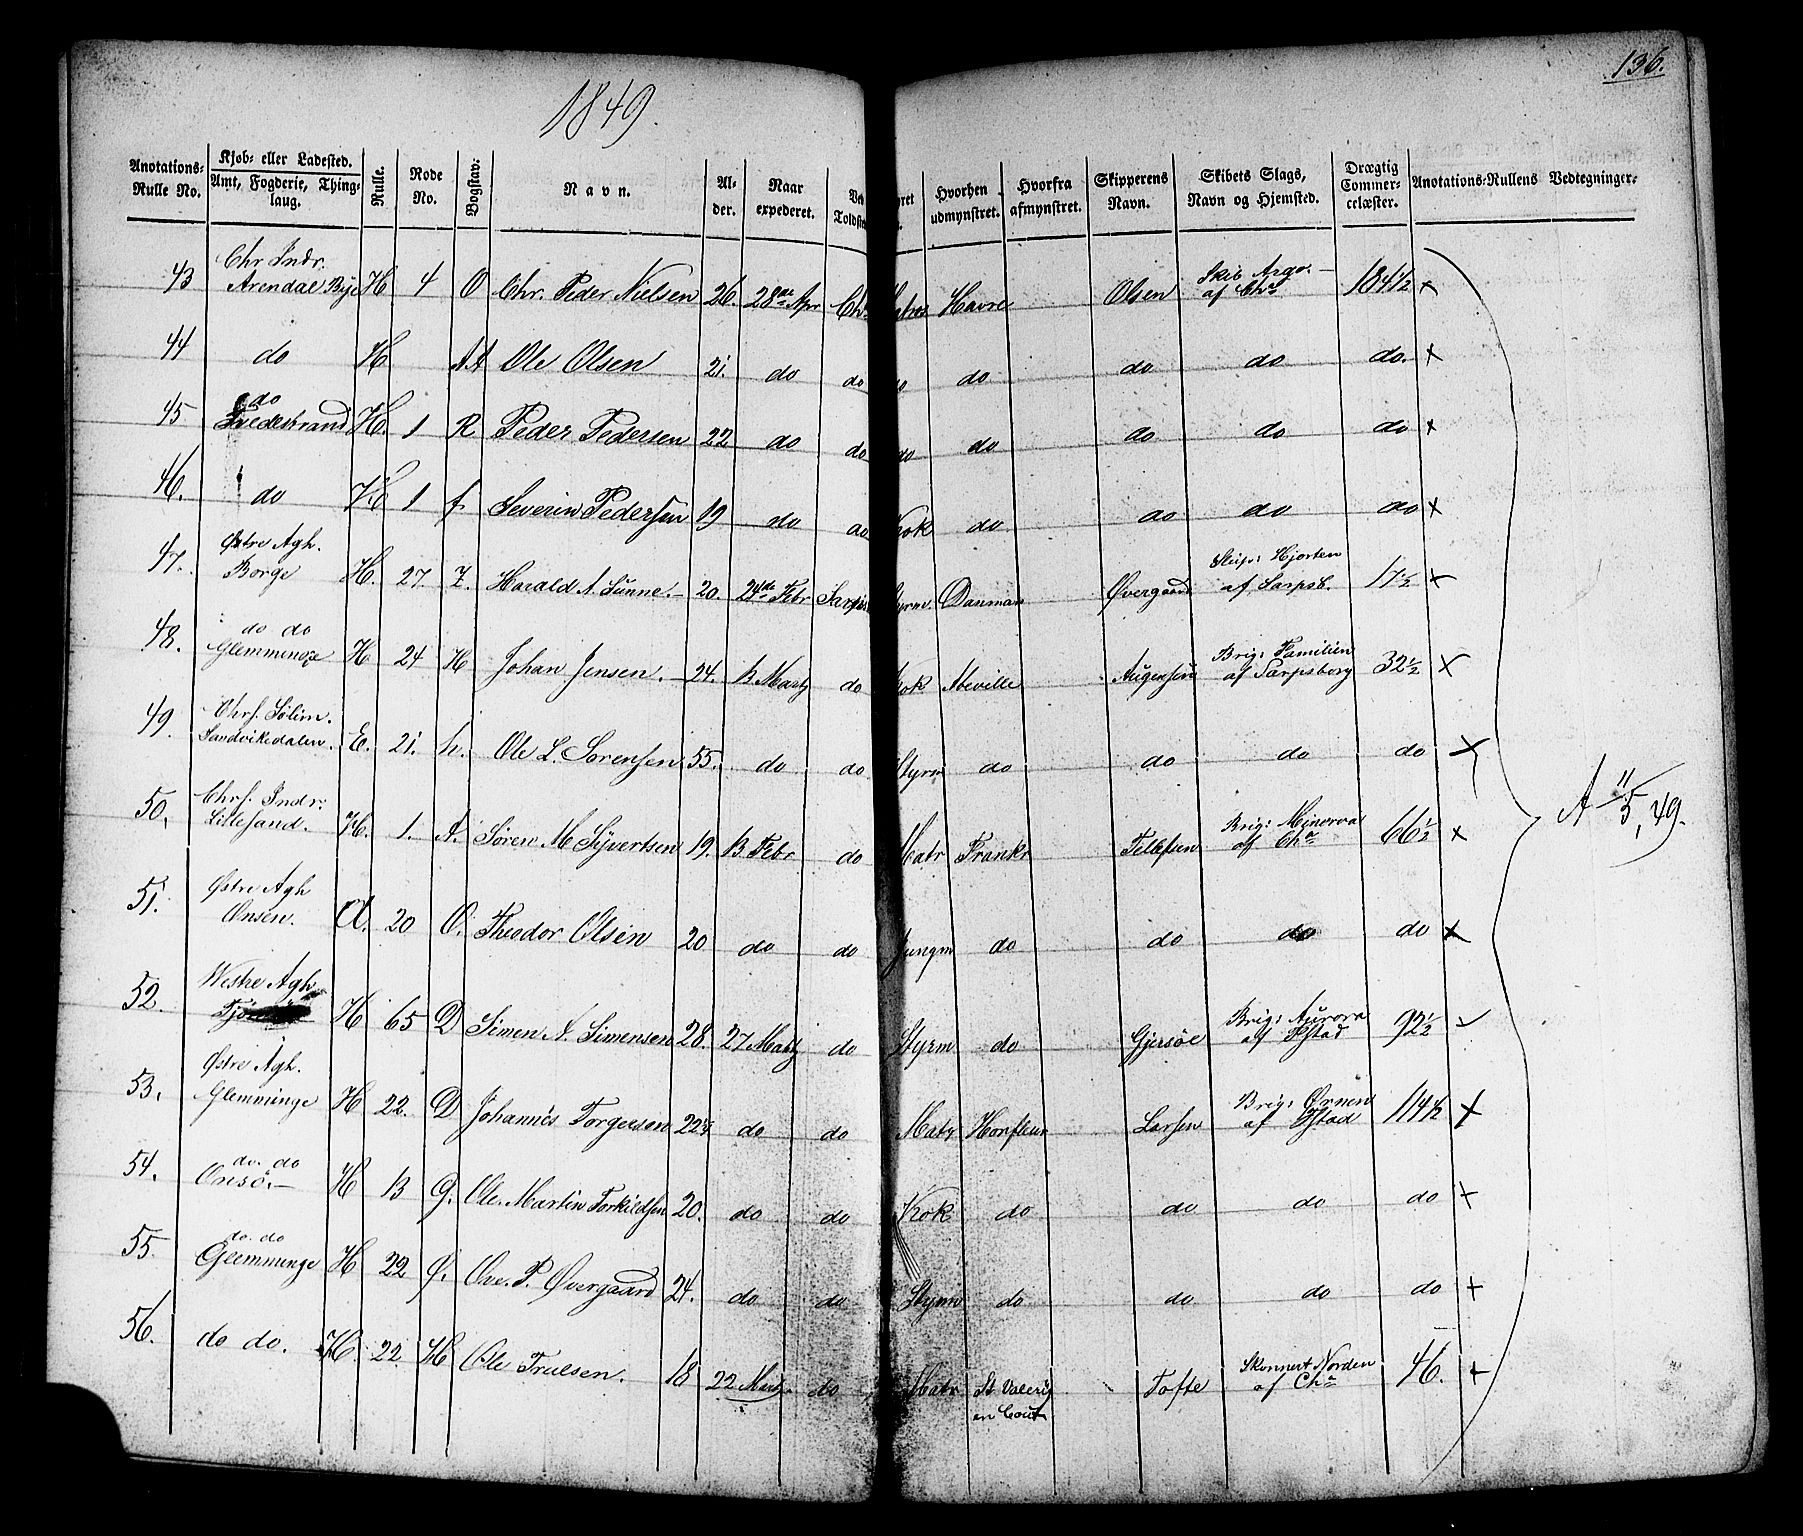 136.
1849.
Anotations-Rulle No. | Kjøb- eller Ladested. Amt, Fogderie, Thinglaug. | Rulle. | Rode No. | Bogstav. | Navn. | Alder. | Naar expederet. | Ved Toldst | yret | Hvorhen udmynstret. | Hvorfra afmynstret. | Skipperens Navn. | Skibets Slags, Navn og Hjemsted. | Drægtig Commercelæster. | Anotations-Rullens Vedtegninger.
43 | Chr. Indr. Arendal Bye | H | 4 | O | Chr. Peder Nielsen | 26. | 28de Apr | Cha | Matros | Havre | Olsen | Skib Argo. af Cha | 184½ | x
44 | do | H | AA | Ole Olsen | 21. | do | do | do | do | do | do | do. | x
45 | do Tvedestrand | H. | 1 | R | Peder Pedersen | 22 | do | do | do | do | do | do | do | x
46. | do | H | 1 | f. | Severin Pedersen | 19 | do | do | Kok | do | do | do | do | x
47. | Østre Agh. Borge | H. | 27. | Z. | Harald A. Sunne. | 20. | 24de Febr | Sarps | Styrm. | Danmark | Øvergaard | Slup: Hjorten af Sarpsb. | 17½ | x
48. | do do Glemminge | H | 24 | H | Johan Jensen. | 24. | 13 Martz | do | Kok | Abeville | Augensen | Brig: Familien af Sarpsborg | 32½ | x
49. | Chrs. Sølim. Sandvikedalen. | E. | 21. | h. | Ole L. Sørensen | 55. | do | do | Styrm | do | do | do | do | x
50. | Chrs. Indr. Lillesand. | H. | 1. | A. | Søren M Syvertsen | 19. | 13 Febr | do | Matr | Frankr | Tellefsen | Brig: Minerva af Cha | 66½ | x
A 11/5, 49.
51. | Østre Agh Onsøn. | A. | 20 | O. | Theodor Olsen | 20 | do | do | Jungm | do | do | do | do | x
52. | Westre Agh | H | 65 | D | Simen A. Simensen | 28. | 27 Martz | do | Styrm | do | Gjersøe | Brig: Aurora af Fstad | 92½ | x
53. | Østre Agh. Glemminge | H | 22. | D | Johannes Torgersen | 22½ | do | do | Matr | Honfleur | Larsen | Brig: Ørnen af Fstad | 114½ | x
54. | do. do Onsø. | H | 13 | G. | Ole Martin Torkildsen | 20. | do | do | Kok | do | do | do | do | x
55. | do. do Glemminge | H | 22 | Ø. | Ove. P. Øvergaard | 24. | do | do | Styrm | do | do | do | do | x
56. | do do. | H. | 22. | H | Ole Truelsen. | 18 | 22 Martz. | do | Matr | St Valery en Cout | Tofte | Skonnert Norden af Cha | 46. | x